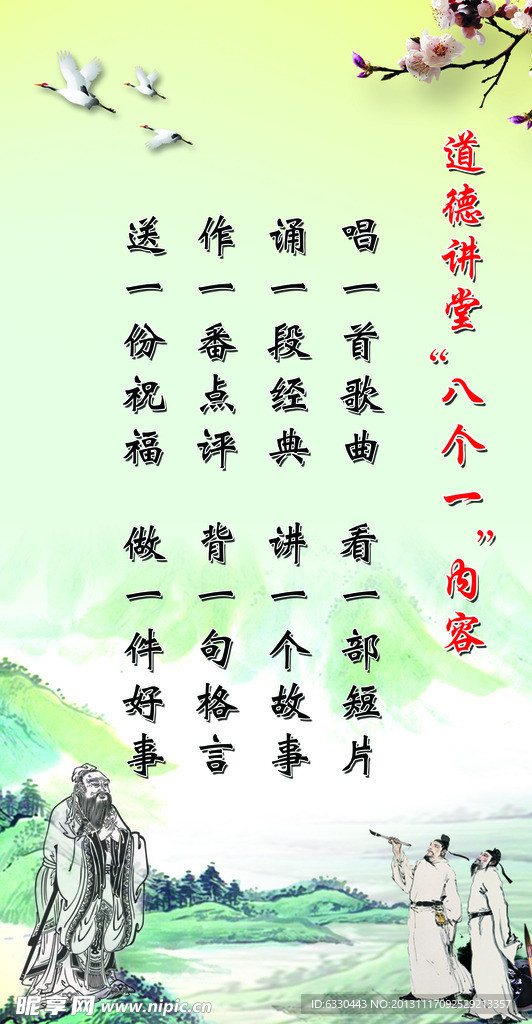 道德讲堂“八个一”内容
唱一首歌曲 看一部短片
诵一段经典 讲一个故事
作一番点评 背一句格言
送一份祝福 做一件好事
昵享网 www.nipic.cn
ID:6330443 NO:20131117092529213357